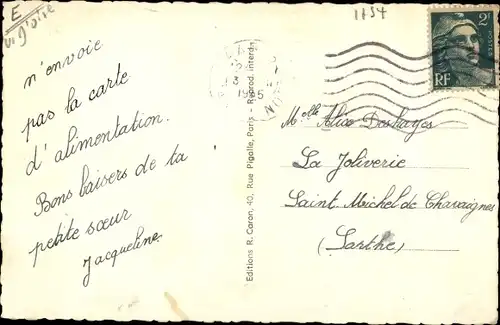 E
1154
n'envoie
pas la carte
d'alimentation.
Bons baisers de ta
petite sœur
Jacqueline
Editions R. Caron, 40, Rue Pigalle, Paris - Reprod. interdite
2F
RF
Melle Alice Deshayes
La Joliverie
Saint Michel de Chavaignes
(Sarthe)